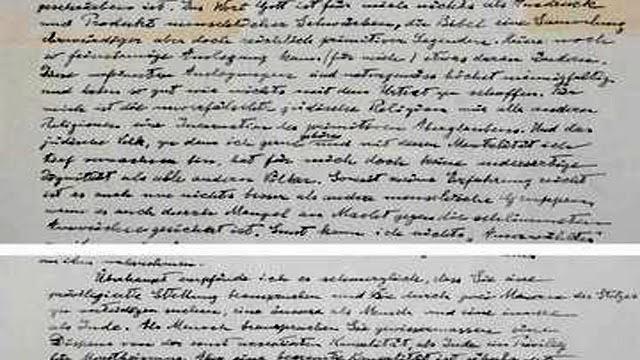 geschrieben ist. Das Wort Gott ist für mich nichts als Ausdruck
und Produkt menschlicher Schwächen, die Bibel eine Sammlung
ehrwürdiger aber doch reichlich primitiver Legenden. Keine noch
so feinsinnige Auslegung kann (für mich) etwas daran ändern.
Diese verfeinerten Auslegungen sind naturgemäss höchst mannigfaltig
und haben so gut wie nichts mit dem Urtext zu schaffen. Für
mich ist die unverfälschte jüdische Religion wie alle anderen
Religionen eine Incarnation des primitiven Aberglaubens. Und das
jüdische Volk, zu dem ich gerne gehöre und mit dessen Mentalität ich
tief verwachsen bin, hat für mich doch keine andersartige
Dignität als alle anderen Völker. Soweit meine Erfahrung reicht
ist es auch um nichts besser als andere menschliche Gruppen
wenn es auch durch Mangel an Macht gegen die schlimmsten
Auswüchse gesichert ist. Sonst kann ich nichts "Auserwähltes"
wahrnehmen.
Überhaupt empfinde ich es schmerzlich, dass Sie eine
privilegierte Stellung beanspruchen und sie durch zwei Mauern des Stolzes
zu verteidigen suchen, eine äussere als Mensch und eine innere
als Jude. Als Mensch beanspruchen Sie gewissermassen einen
Dispens von der sonst acceptierten Kausalität, als Jude ein Privileg
für Monotheismus. Aber eine begrenzte Kausalität ist